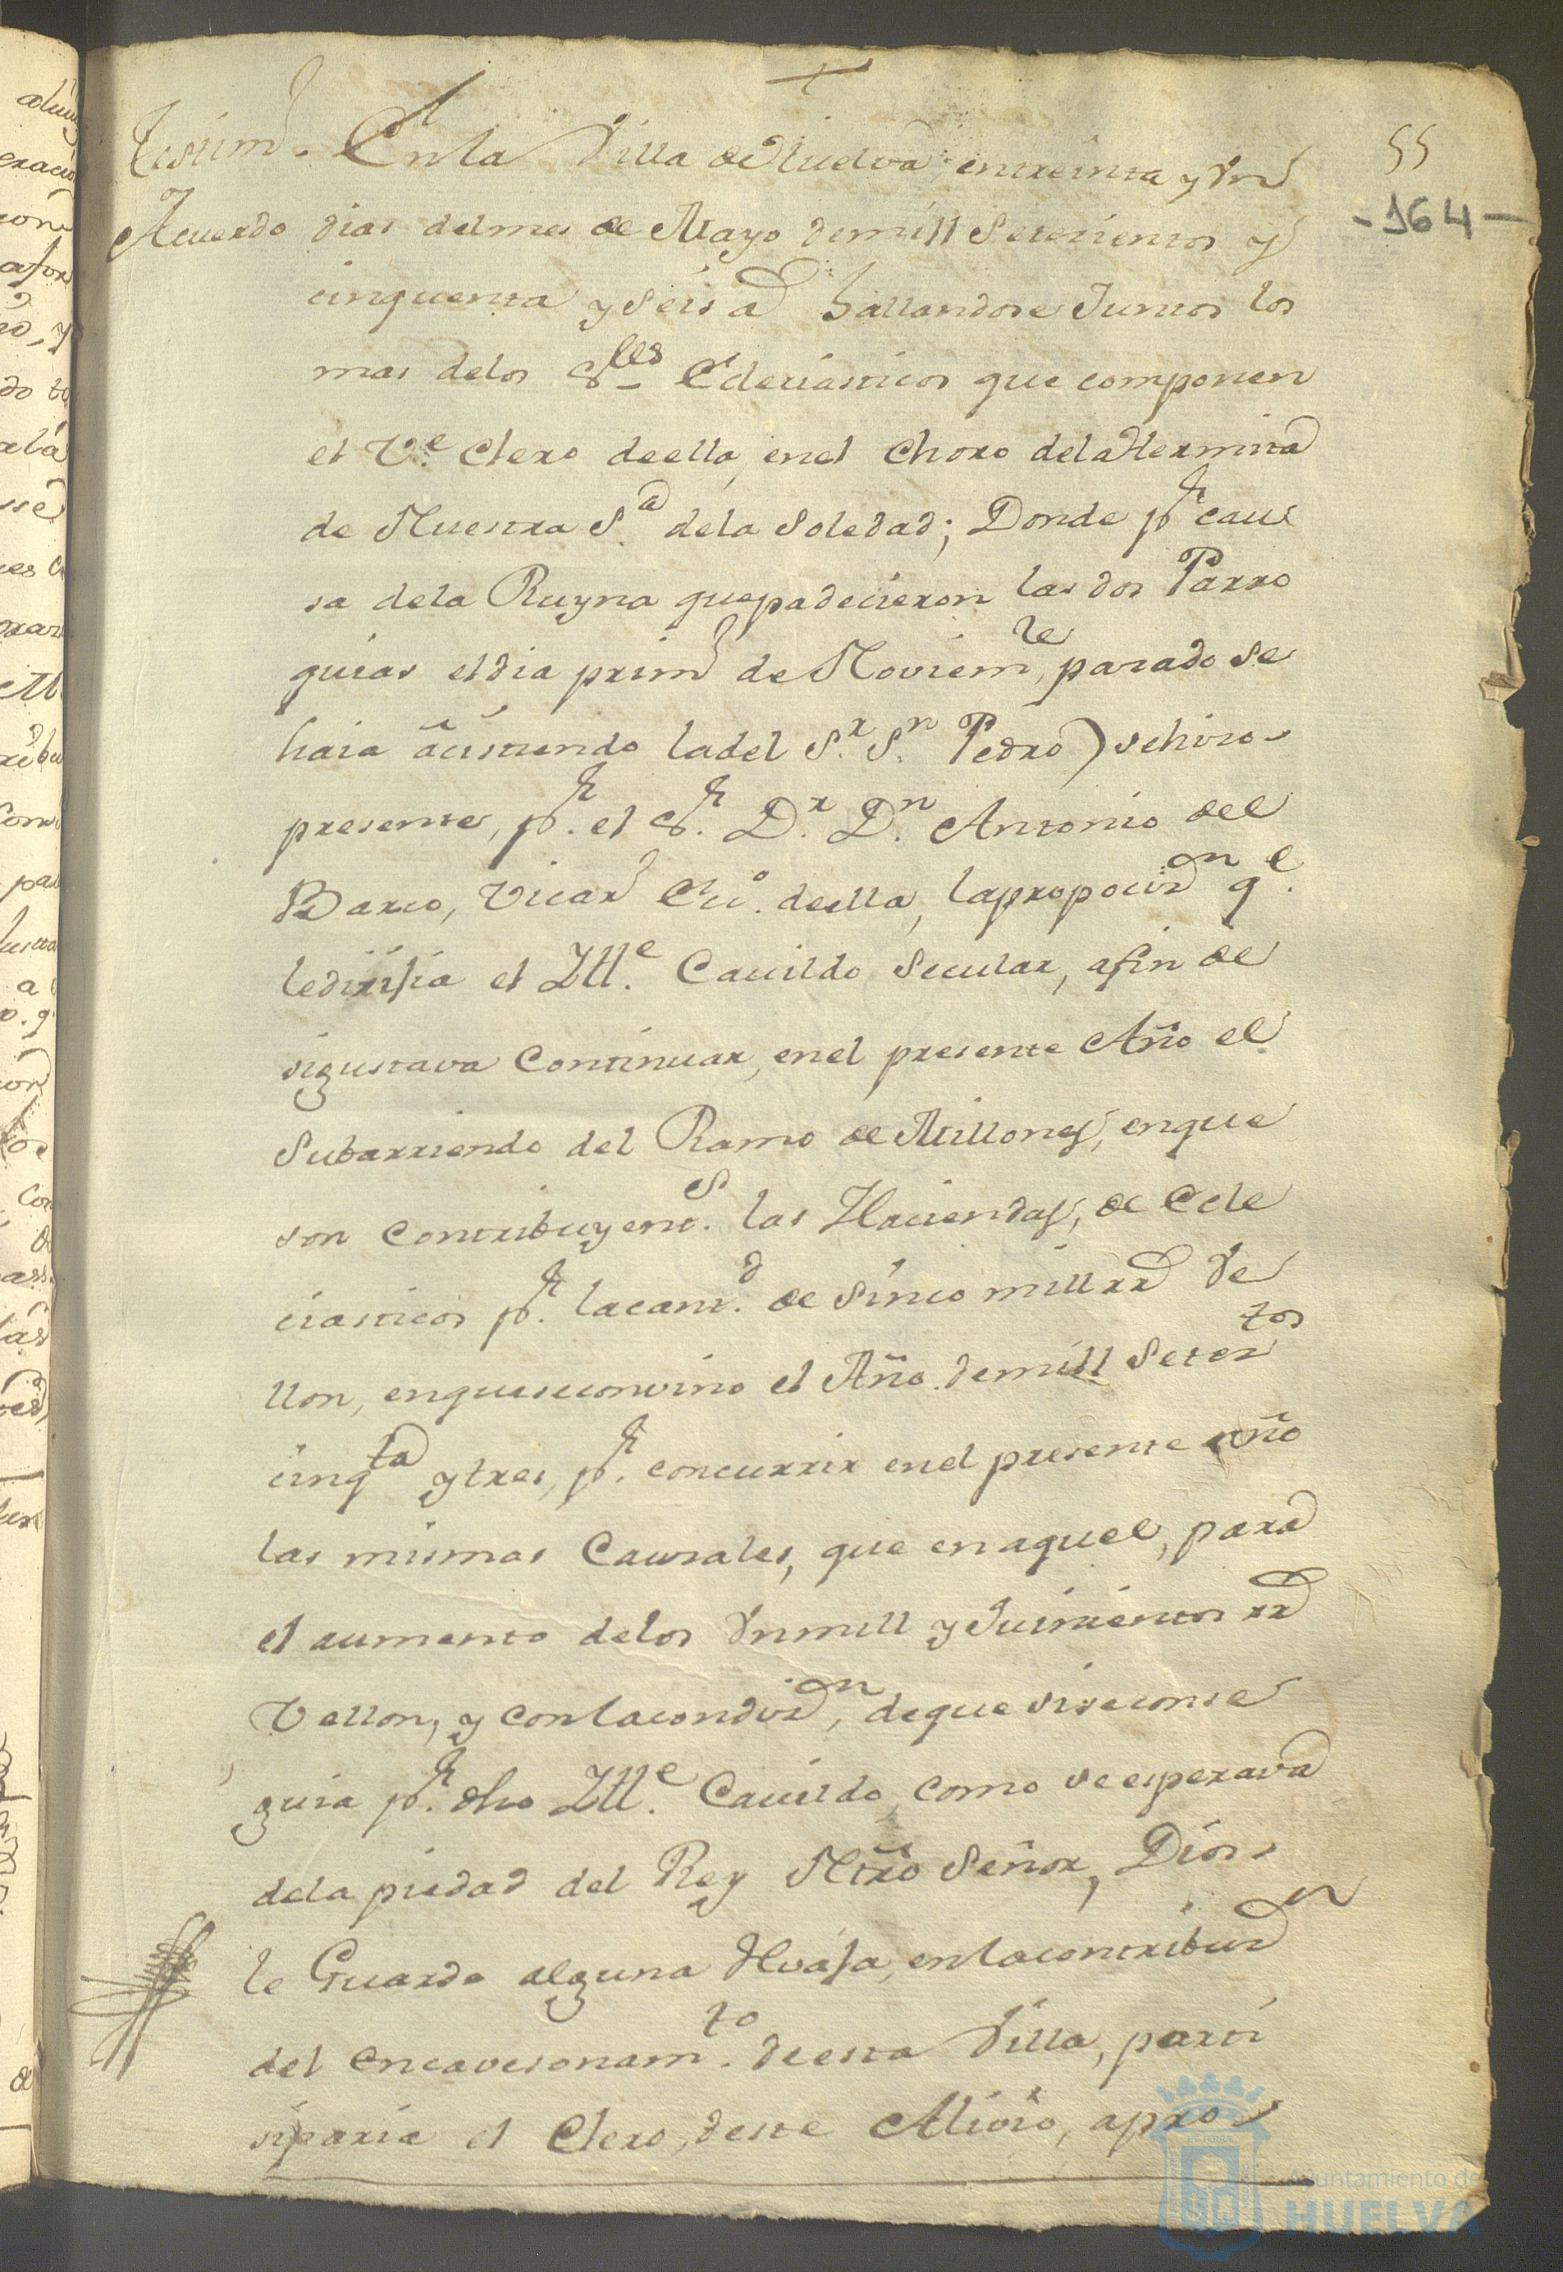 +
Testim.º En la Villa de Huelva, en treinta y Un
55
Acuerdo dias del mes de Mayo de mill Setecientos y
-164-
cinquenta y Seis a.s hallandose Juntos los
mas delos S.res Eclesiasticos que componen
el V.e Clero de ella, en el Choro dela Hermita
de Nuestra S.a dela Soledad; Donde p.r cau
sa dela Ruyna que padecieron las dos Parro
quias el dia prim.o de Noviem.re pasado se
haia asistiendo la del S.r S.n Pedro) se hizo
presente, p.r el S.r D.r D.n Antonio del
Barco, Vicar.o Ec.co de ella, la proposiz.on q.e
le dirixia el Ill.e Cavildo Secular, a fin de
si gustava Continuar, en el presente Año el
Subarriendo del Ramo de Millones, en que
son Contribuyent.s las Haciendas, de Ecle
ciasticos p.r la cant.d de Sinco mill rr.s Ve
llon, en que se convino el Año de mill Setez.tos
cinq.ta y tres, p.r concurrir en el presente año
las mismas Causales, que en aquel, para
el aumento delos Un mill y Quinientos rr.s
Vellon, y con la condiz.on, de que si se conse
guia p.r dho Ill.e Cavildo, como se esperava
dela piedad del Rey Ntro Señor, Dios
le Guarde alguna Revaja, en la contribuz.on
del encavesonam.to de esta Villa, parti
siparia el Clero, de este Alivio, a pro
Ayuntamiento de
HUELVA